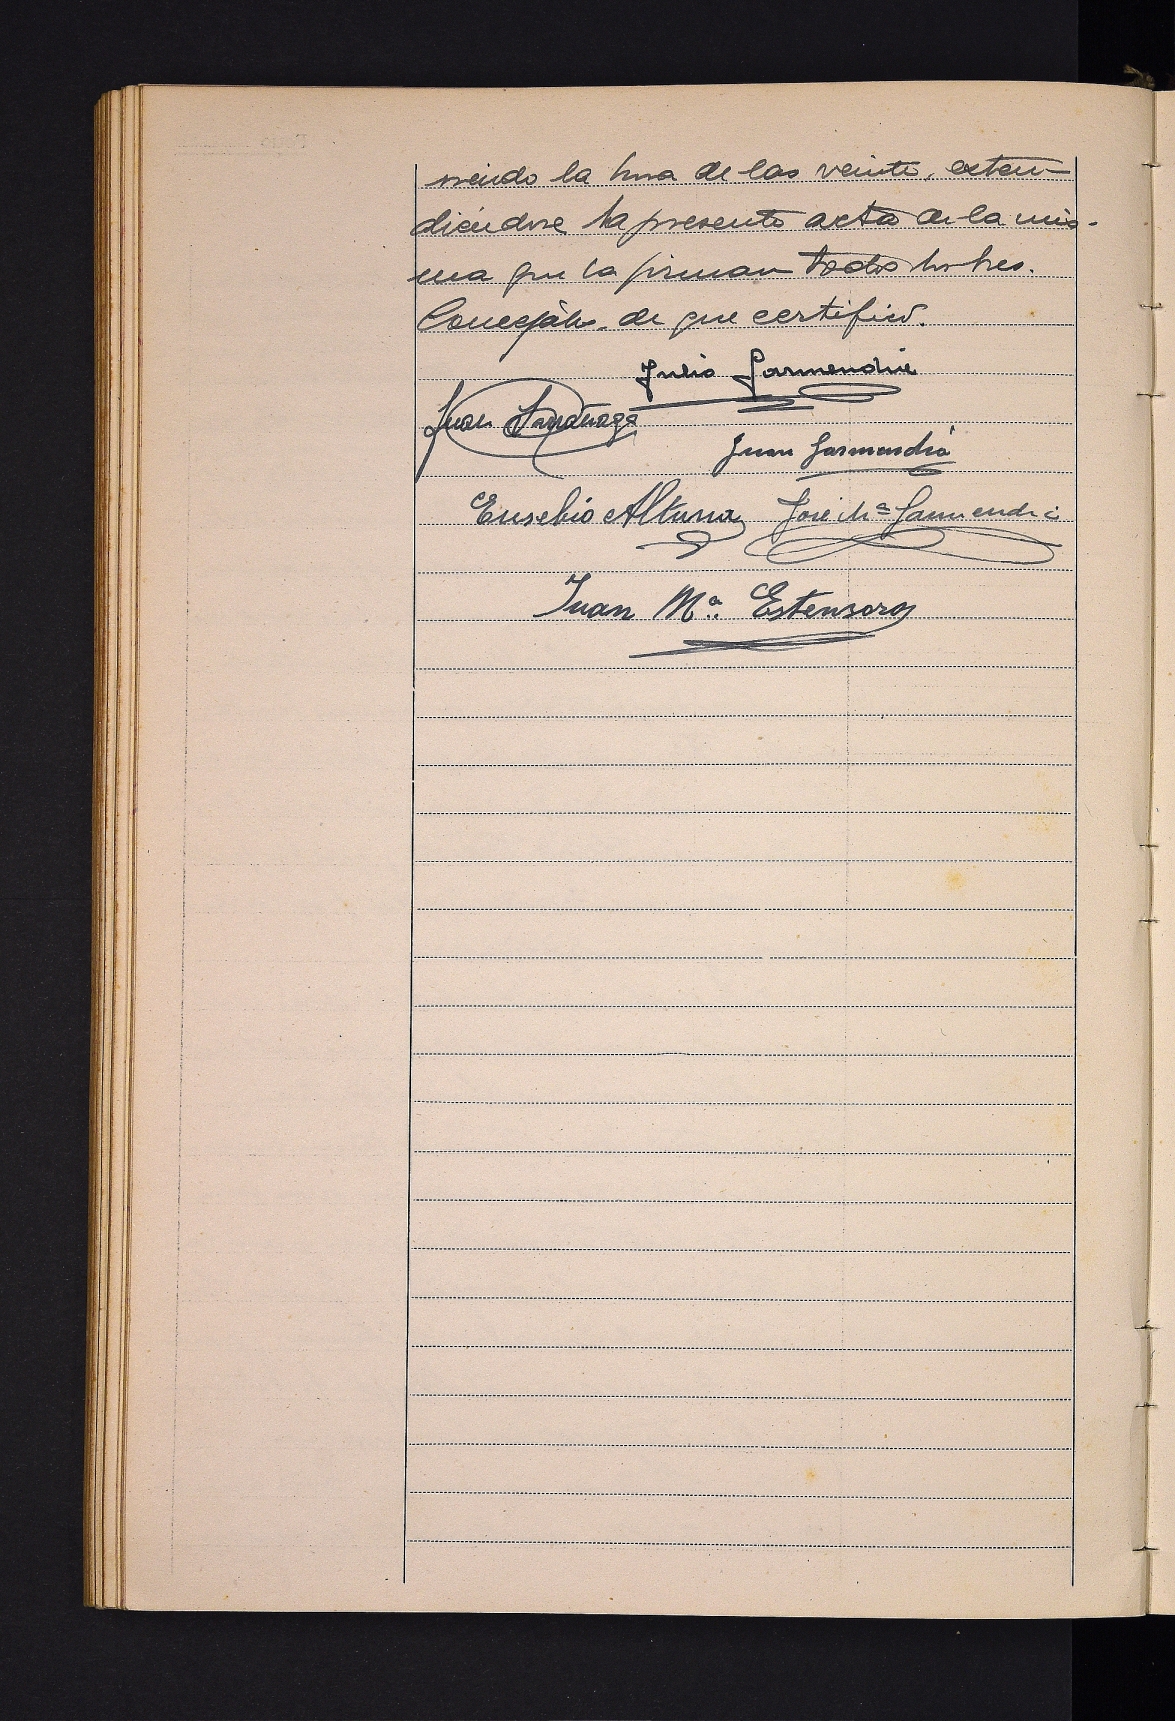 siendo la hora de las veinte, exten-
diéndose la presente acta de la mis-
ma que la firman todos los Sres.
Concejales, de que certifico.
Julio Garmendia
Juan
Juan Garmendia
Eusebio Altuna José Mª Garmendia
Juan Mª. Estensoro